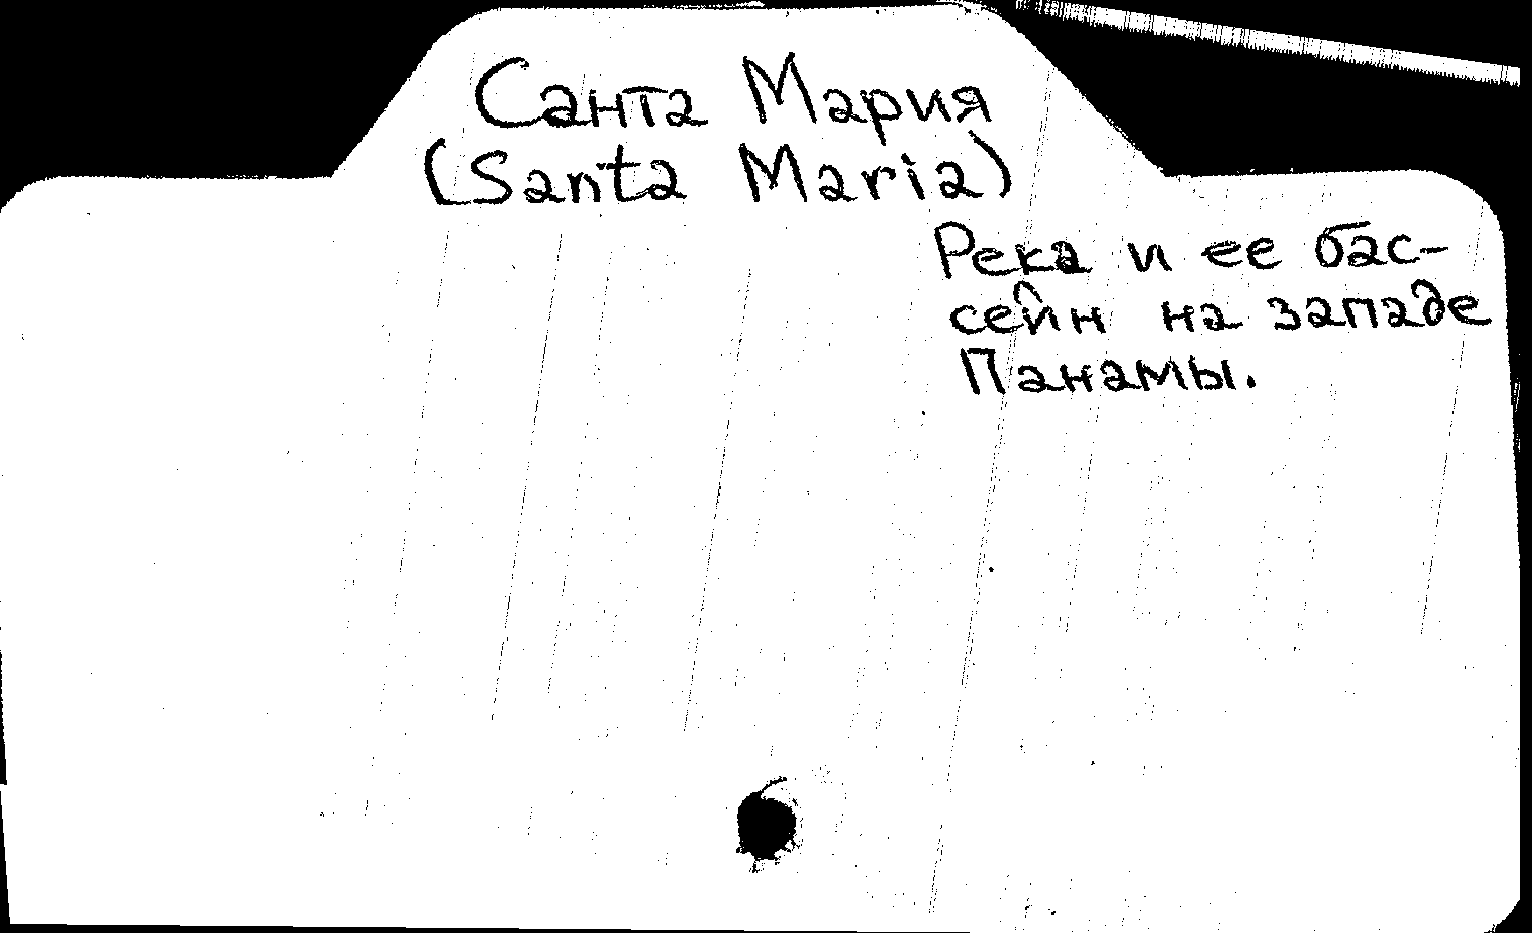 Санта Мария
(Santa Maria)
Река и ее бас-
сейн на западе
Панамы.